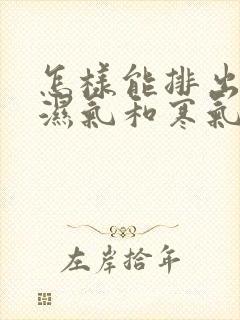 怎樣能排出
濕氣和寒氣
左岸拾年